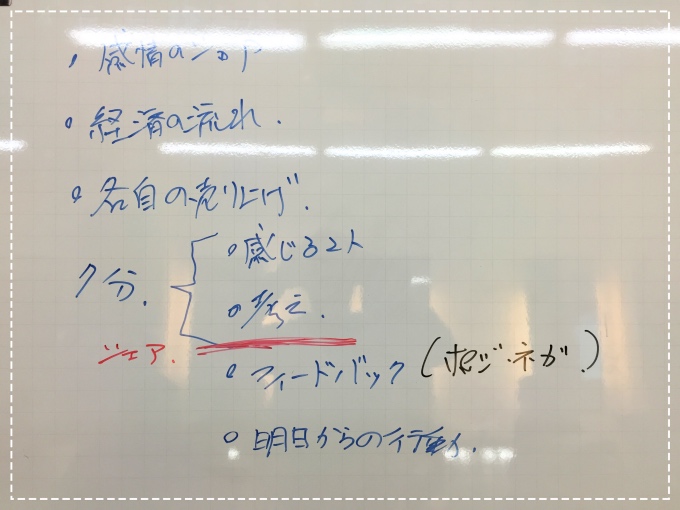 ・感情のシフト
・経済の流れ.
・各自の売り上げ.
7分.
・感じること
・考え.
シェア.
・フィードバック (ポジ・ネガ.)
・明日からの行動.